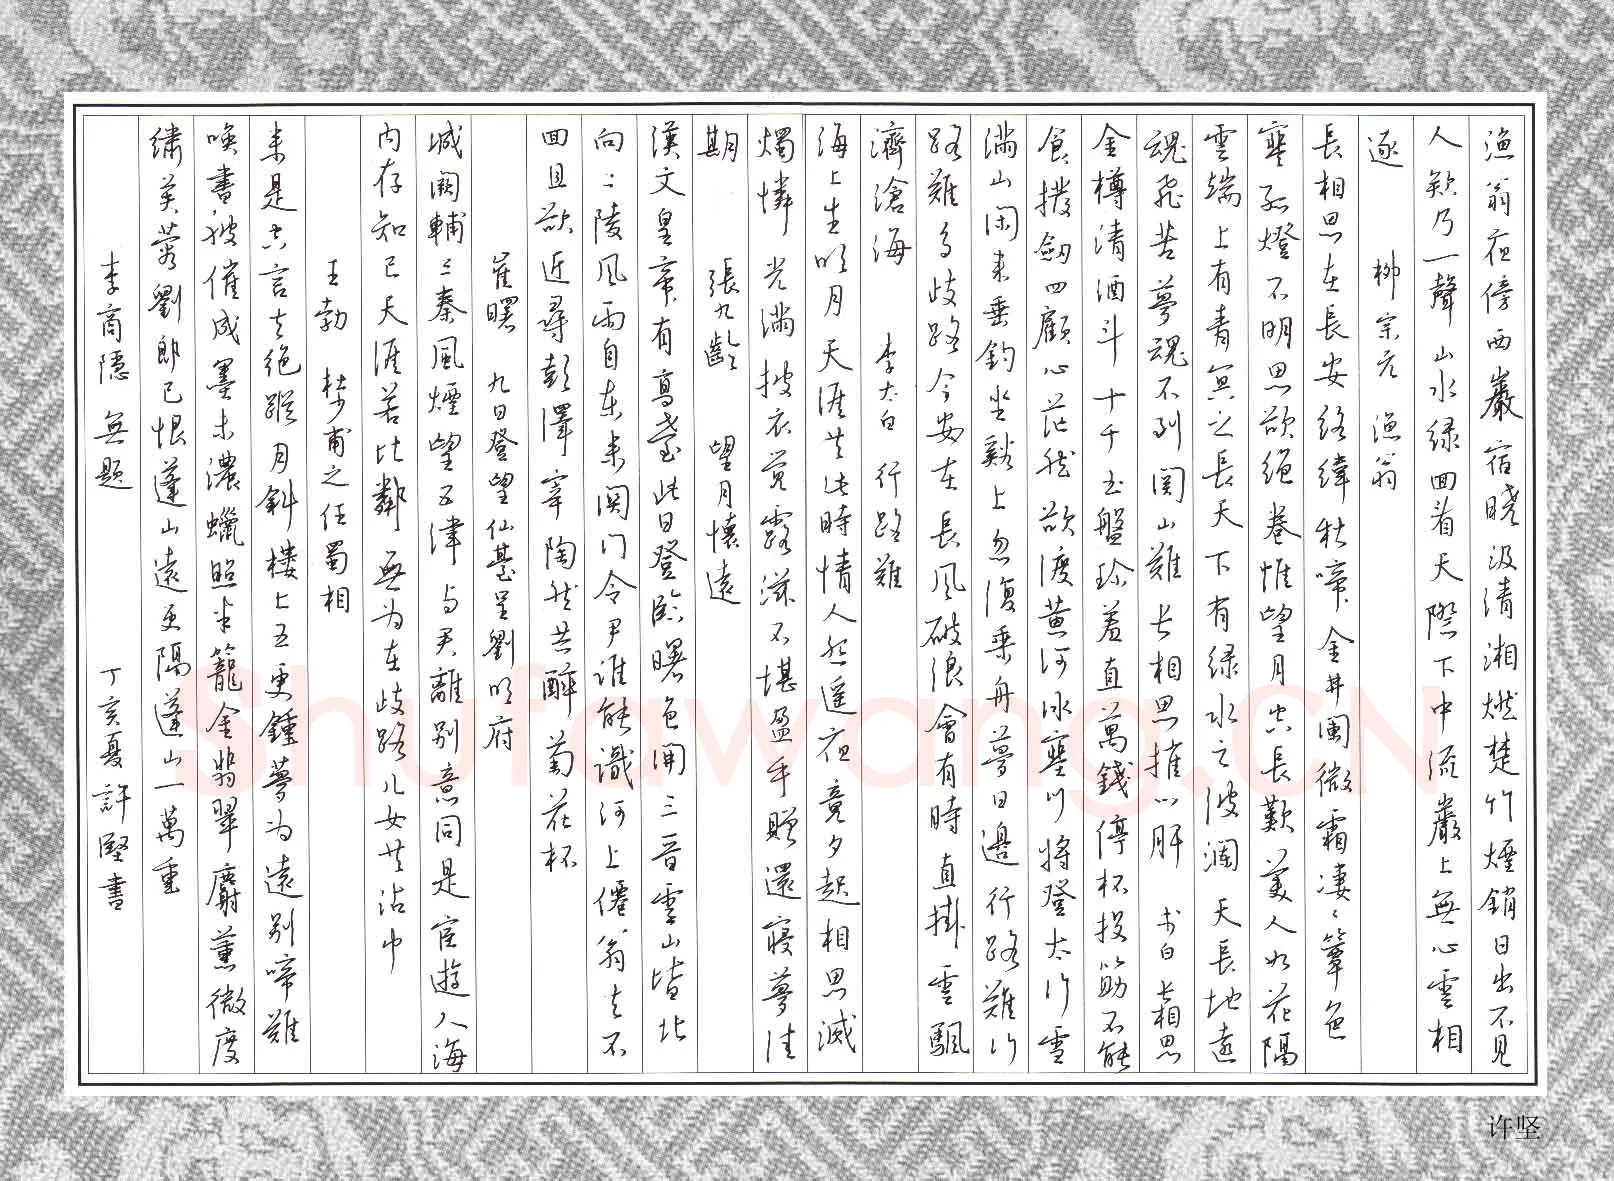 漁翁夜傍西巖宿曉汲清湘燃楚竹煙銷日出不見
人欸乃一聲山水绿回看天際下中流巖上無心雲相
逐　柳宗元　漁翁
長相思在長安络緯秋啼金井闌微霜凄〻簟色
寒孤燈不明思欲絕卷帷望月空長歎美人如花隔
雲端上有青冥之長天下有绿水之波瀾天長地遠
魂飛苦夢魂不到関山難长相思摧心肝　李白　長相思
金樽清酒斗十千玉盤珍羞直萬錢停杯投筯不能
食拔劍四顧心茫然欲渡黄河冰塞川将登太行雪
滿山闲来垂钓坐谿上忽復乘舟夢日邊行路難行
路難多歧路今安在長風破浪會有時直掛雲颿
濟滄海　李太白　行路難
海上生明月天涯共此時情人怨遥夜竟夕起相思滅
燭憐光滿披衣覺露滋不堪盈手贈還寢夢佳
期　張九齡　望月懷遠
漢文皇帝有高臺此日登臨曙色開三晋雲山皆北
向二陵風雨自东来関门令尹谁能識河上僊翁去不
回且欲近尋彭澤宰陶然共醉菊花杯
崔曙　九日登望仙臺呈劉明府
城闕輔三秦風煙望五津与君離别意同是宦遊人海
内存知己天涯若比鄰無为在歧路儿女共沾巾
王勃　杜少甫之任蜀相
来是空言去绝蹤月斜樓上五更鍾夢为遠别啼難
唤書被催成墨未濃蠟照半籠金翡翠麝薰微度
绣芙蓉劉郎已恨蓬山遠更隔蓬山一萬重
李商隱　無题　丁亥夏許堅書
Shufawang.CN
许坚